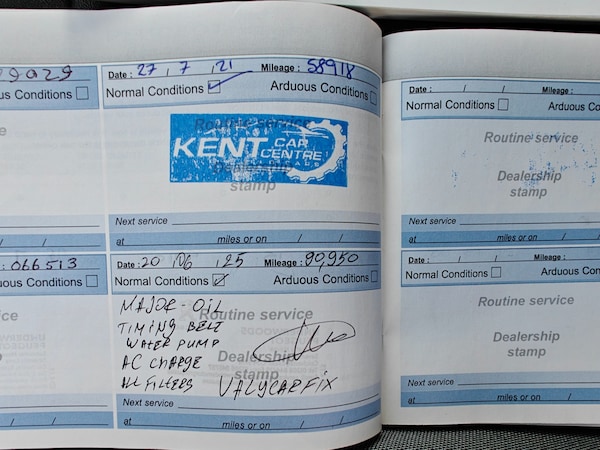 Date : 27 / 7 / 21 Mileage : 58918
us Conditions
Normal Conditions Arduous Conditions
Routine service
KENT CAR CENTRE
Dealership
stamp
Next service
at / / miles or on / /
: 066513
us Conditions
Date : 20 / 06 / 25 Mileage : 90,950
Normal Conditions Arduous Conditions
MAJOR - OIL
TIMING BELT
WATER PUMP
AC CHARGE
ALL FILTERS
Routine service
Dealership
stamp
VALYCARFIX
Next service
at miles or on / /
Date : / / Mileage :
Normal Conditions Ar
Routine service
Dealership
stamp
Next service
at miles or on / /
Date : / / Mileage :
Normal Conditions Ardu
Routine service
Dealership
stamp
Next service
at miles or on / /